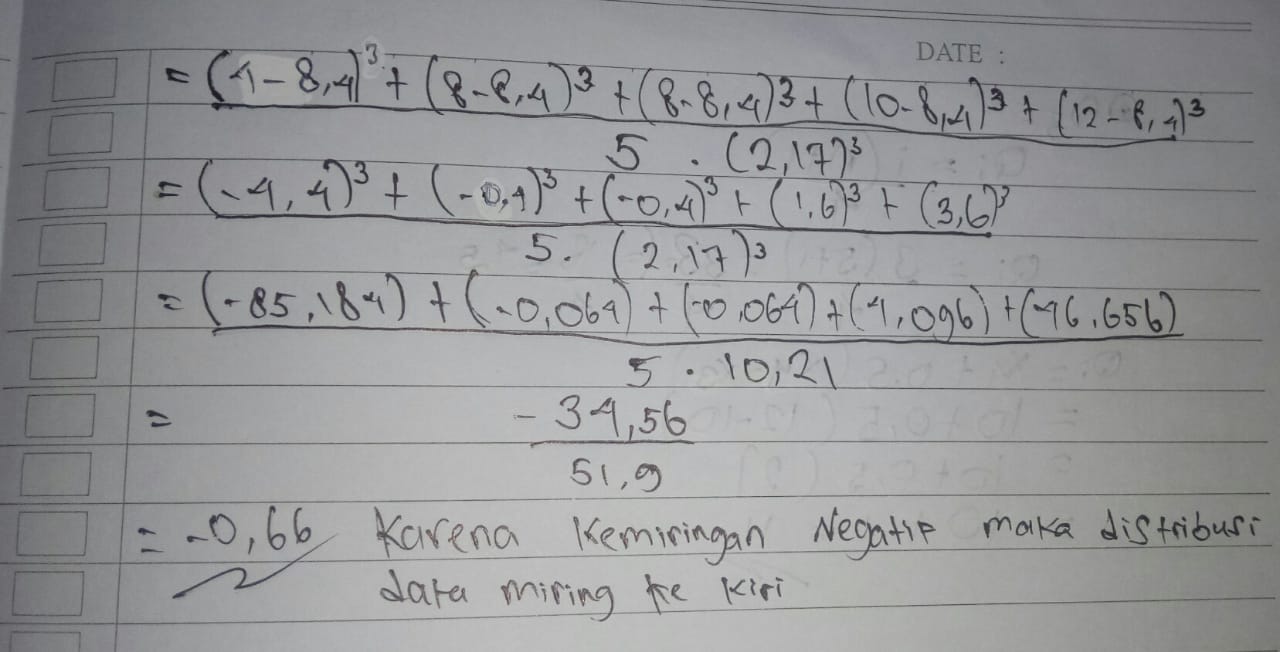 DATE :
= (4-8,4)³ + (8-8,4)³ + (8-8,4)³ + (10-8,4)³ + (12-8,4)³
5 . (2,17)³
= (-4,4)³ + (-0,4)³ + (-0,4)³ + (1,6)³ + (3,6)³
5. (2,17)³
= (-85,184) + (-0,064) + (-0,064) + (4,096) + (46,656)
5 . 10,21
= - 34,56
51,9
= -0,66 Karena Kemiringan Negatif maka distribusi
data miring ke kiri